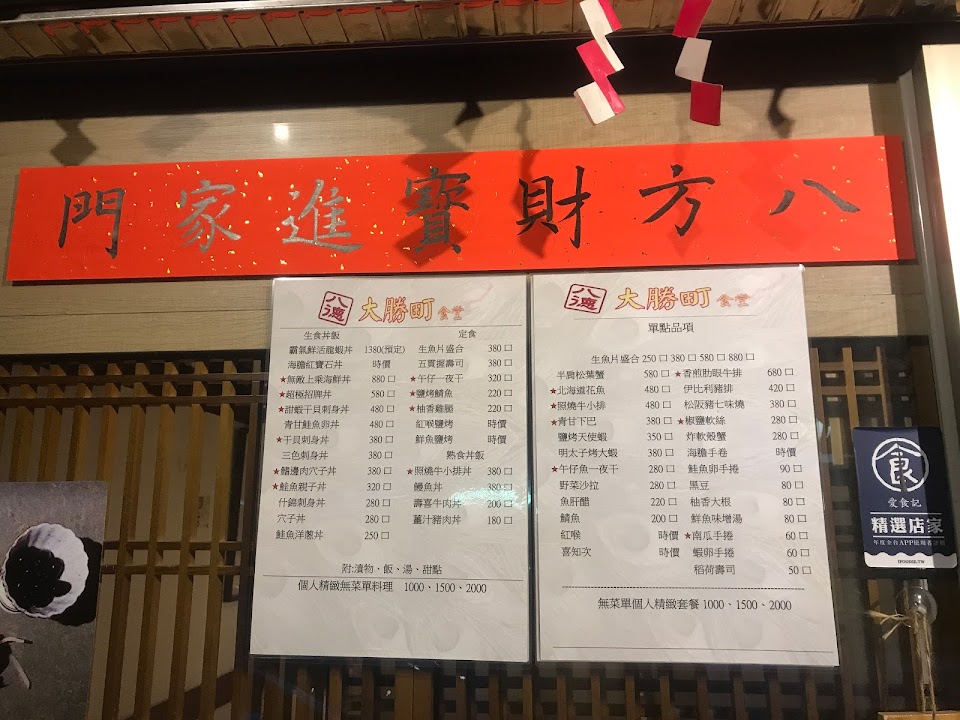 八方財寶進家門
八德 大勝町 食堂
生食丼飯
霸氣鮮活龍蝦丼 1380(預定)
海膽紅寶石丼 時價
★無敵上乘海鮮丼 880 □
★超極招牌丼 580 □
★甜蝦干貝刺身丼 480 □
青甘鮭魚卵丼 480 □
★干貝刺身丼 380 □
三色刺身丼 380 □
★鰭邊肉穴子丼 380 □
★鮭魚親子丼 320 □
什錦刺身丼 280 □
穴子丼 280 □
鮭魚洋蔥丼 250 □
定食
生魚片盛合 380 □
五貫握壽司 380 □
★午仔一夜干 320 □
★鹽烤鯖魚 220 □
★柚香雞腿 220 □
紅喉鹽烤 時價
鮮魚鹽烤 時價
熟食丼飯
★照燒牛小排丼 380 □
鰻魚丼 380 □
壽喜牛肉丼 200 □
薑汁豬肉丼 180 □
附:漬物、飯、湯、甜點
個人精緻無菜單料理 1000、1500、2000
八德 大勝町 食堂
單點品項
生魚片盛合 250 □ 380 □ 580 □ 880 □
半隻松葉蟹 580 □
★北海道花魚 480 □
★照燒牛小排 480 □
★青甘下巴 380 □
鹽烤天使蝦 350 □
明太子烤大蝦 380 □
★午仔魚一夜干 280 □
野菜沙拉 280 □
魚肝醋 220 □
鯖魚 200 □
紅喉 時價
喜知次 時價
★香煎肋眼牛排 680 □
伊比利豬排 420 □
松阪豬七味燒 380 □
★椒鹽軟絲 280 □
炸軟殼蟹 280 □
海膽手卷 時價
鮭魚卵手捲 90 □
黑豆 80 □
柚香大根 80 □
鮮魚味增湯 80 □
★南瓜手捲 60 □
蝦卵手捲 60 □
稻荷壽司 50 □
無菜單個人精緻套餐 1000、1500、2000
食
愛食記
精選店家
IFOODIE.TW